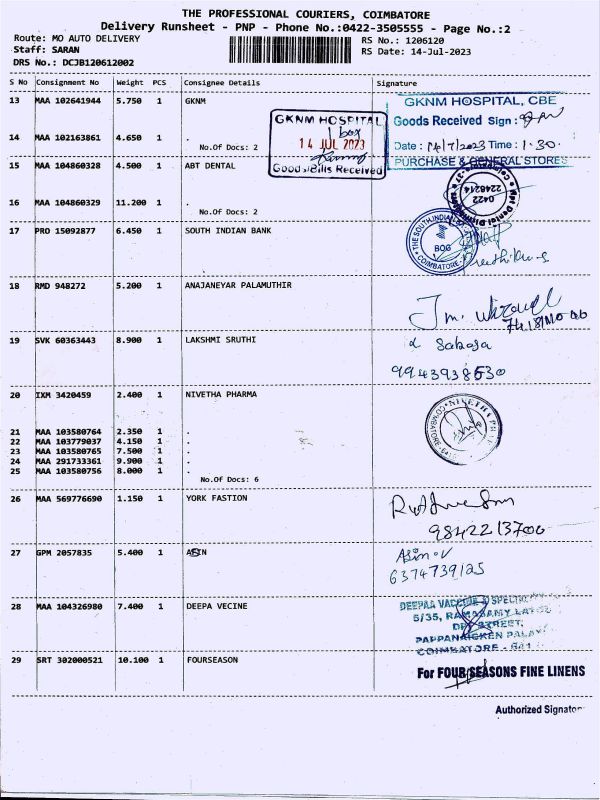 THE PROFESSIONAL COURIERS, COIMBATORE
Delivery Runsheet - PNP - Phone No.:0422-3505555 - Page No.:2
Route: MO AUTO DELIVERY RS No.: 1206120
Staff: SARAN RS Date: 14-Jul-2023
DRS No.: DCJB120612002
S No Consignment No Weight PCS Consignee Details Signature
13 MAA 102641944 5.750 1 GKNM
GKNM HOSPITAL, CBE
Goods Received Sign :
Date : 14/7/2023 Time : 1.30.
PURCHASE & GENERAL STORES
GKNM HOSPITAL
1 box
14 JUL 2023
Goods/Bills Received
14 MAA 102163861 4.650 1 .
No.Of Docs: 2
15 MAA 104860328 4.500 1 ABT DENTAL
0422
2248214
16 MAA 104860329 11.200 1 .
No.Of Docs: 2
17 PRO 15092877 6.450 1 SOUTH INDIAN BANK
THE SOUTH INDIAN
BOG
COIMBATORE
18 RMD 948272 5.200 1 ANAJANEYAR PALAMUTHIR
19 SVK 60363443 8.900 1 LAKSHMI SRUTHI
9943938530
20 IXM 3420459 2.400 1 NIVETHA PHARMA
NIVETHA
COIMBATORE
21 MAA 103580764 2.350 1 .
22 MAA 103779037 4.150 1 .
23 MAA 103580765 7.500 1 .
24 MAA 291733361 9.900 1 .
25 MAA 103580756 8.000 1 .
No.Of Docs: 6
26 MAA 569776690 1.150 1 YORK FASTION
9842213700
27 GPM 2057835 5.400 1 ASIN
Asin.V
6374739125
28 MAA 104326980 7.400 1 DEEPA VECINE
DEEPAA VACCINE
5/35, RAMASAMY
STREET,
PAPPANAICKEN PALAY
COIMBATORE - 641
29 SRT 302000521 10.100 1 FOURSEASON
For FOUR SEASONS FINE LINENS
Authorized Signator